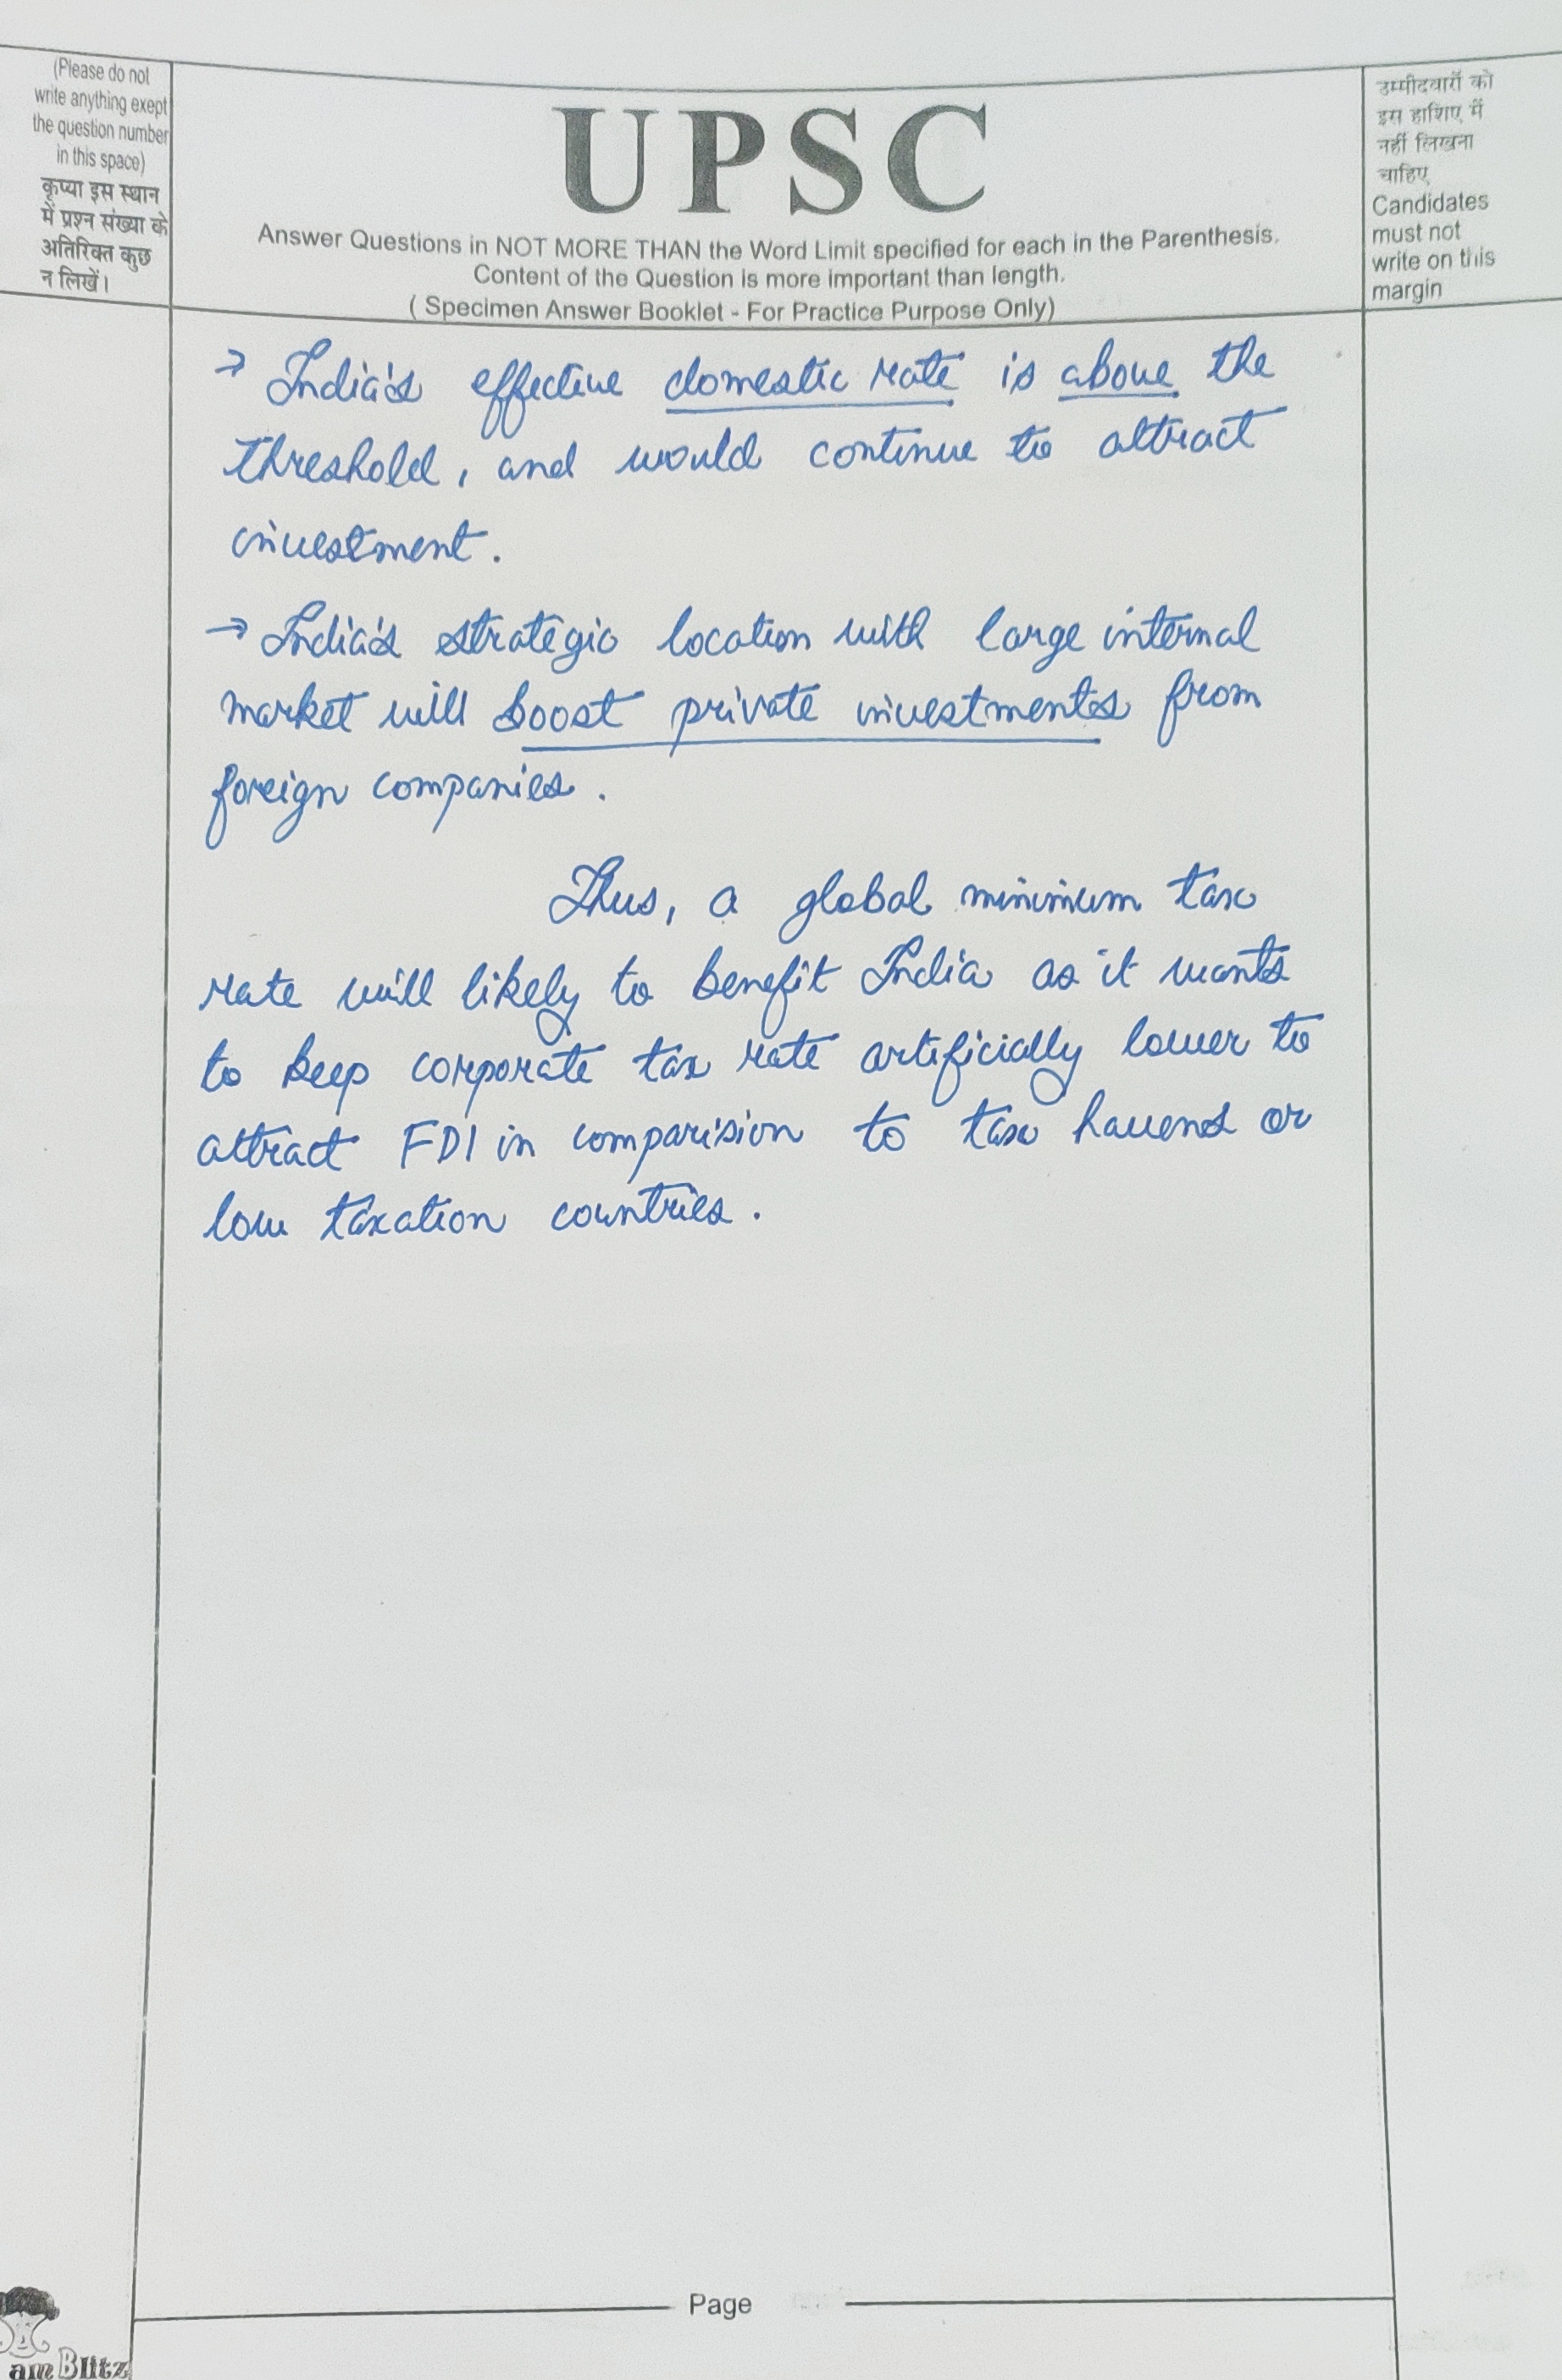 (Please do not
write anything exept
the question number
in this space)
कृप्या इस स्थान
में प्रश्न संख्या के
अतिरिक्त कुछ
न लिखें।
UPSC
Answer Questions in NOT MORE THAN the Word Limit specified for each in the Parenthesis.
Content of the Question is more important than length.
( Specimen Answer Booklet - For Practice Purpose Only)
उम्मीदवारों को
इस हाशिए में
नहीं लिखना
चाहिए
Candidates
must not
write on this
margin
→ India's effective domestic rate is above the
threshold, and would continue to attract
investment.
→ India's strategic location with large internal
market will boost private investments from
foreign companies.
Thus, a global minimum tax
rate will likely to benefit India as it wants
to keep corporate tax rate artificially lower to
attract FDI in comparision to tax havens or
low taxation countries.
Page
am Blitz